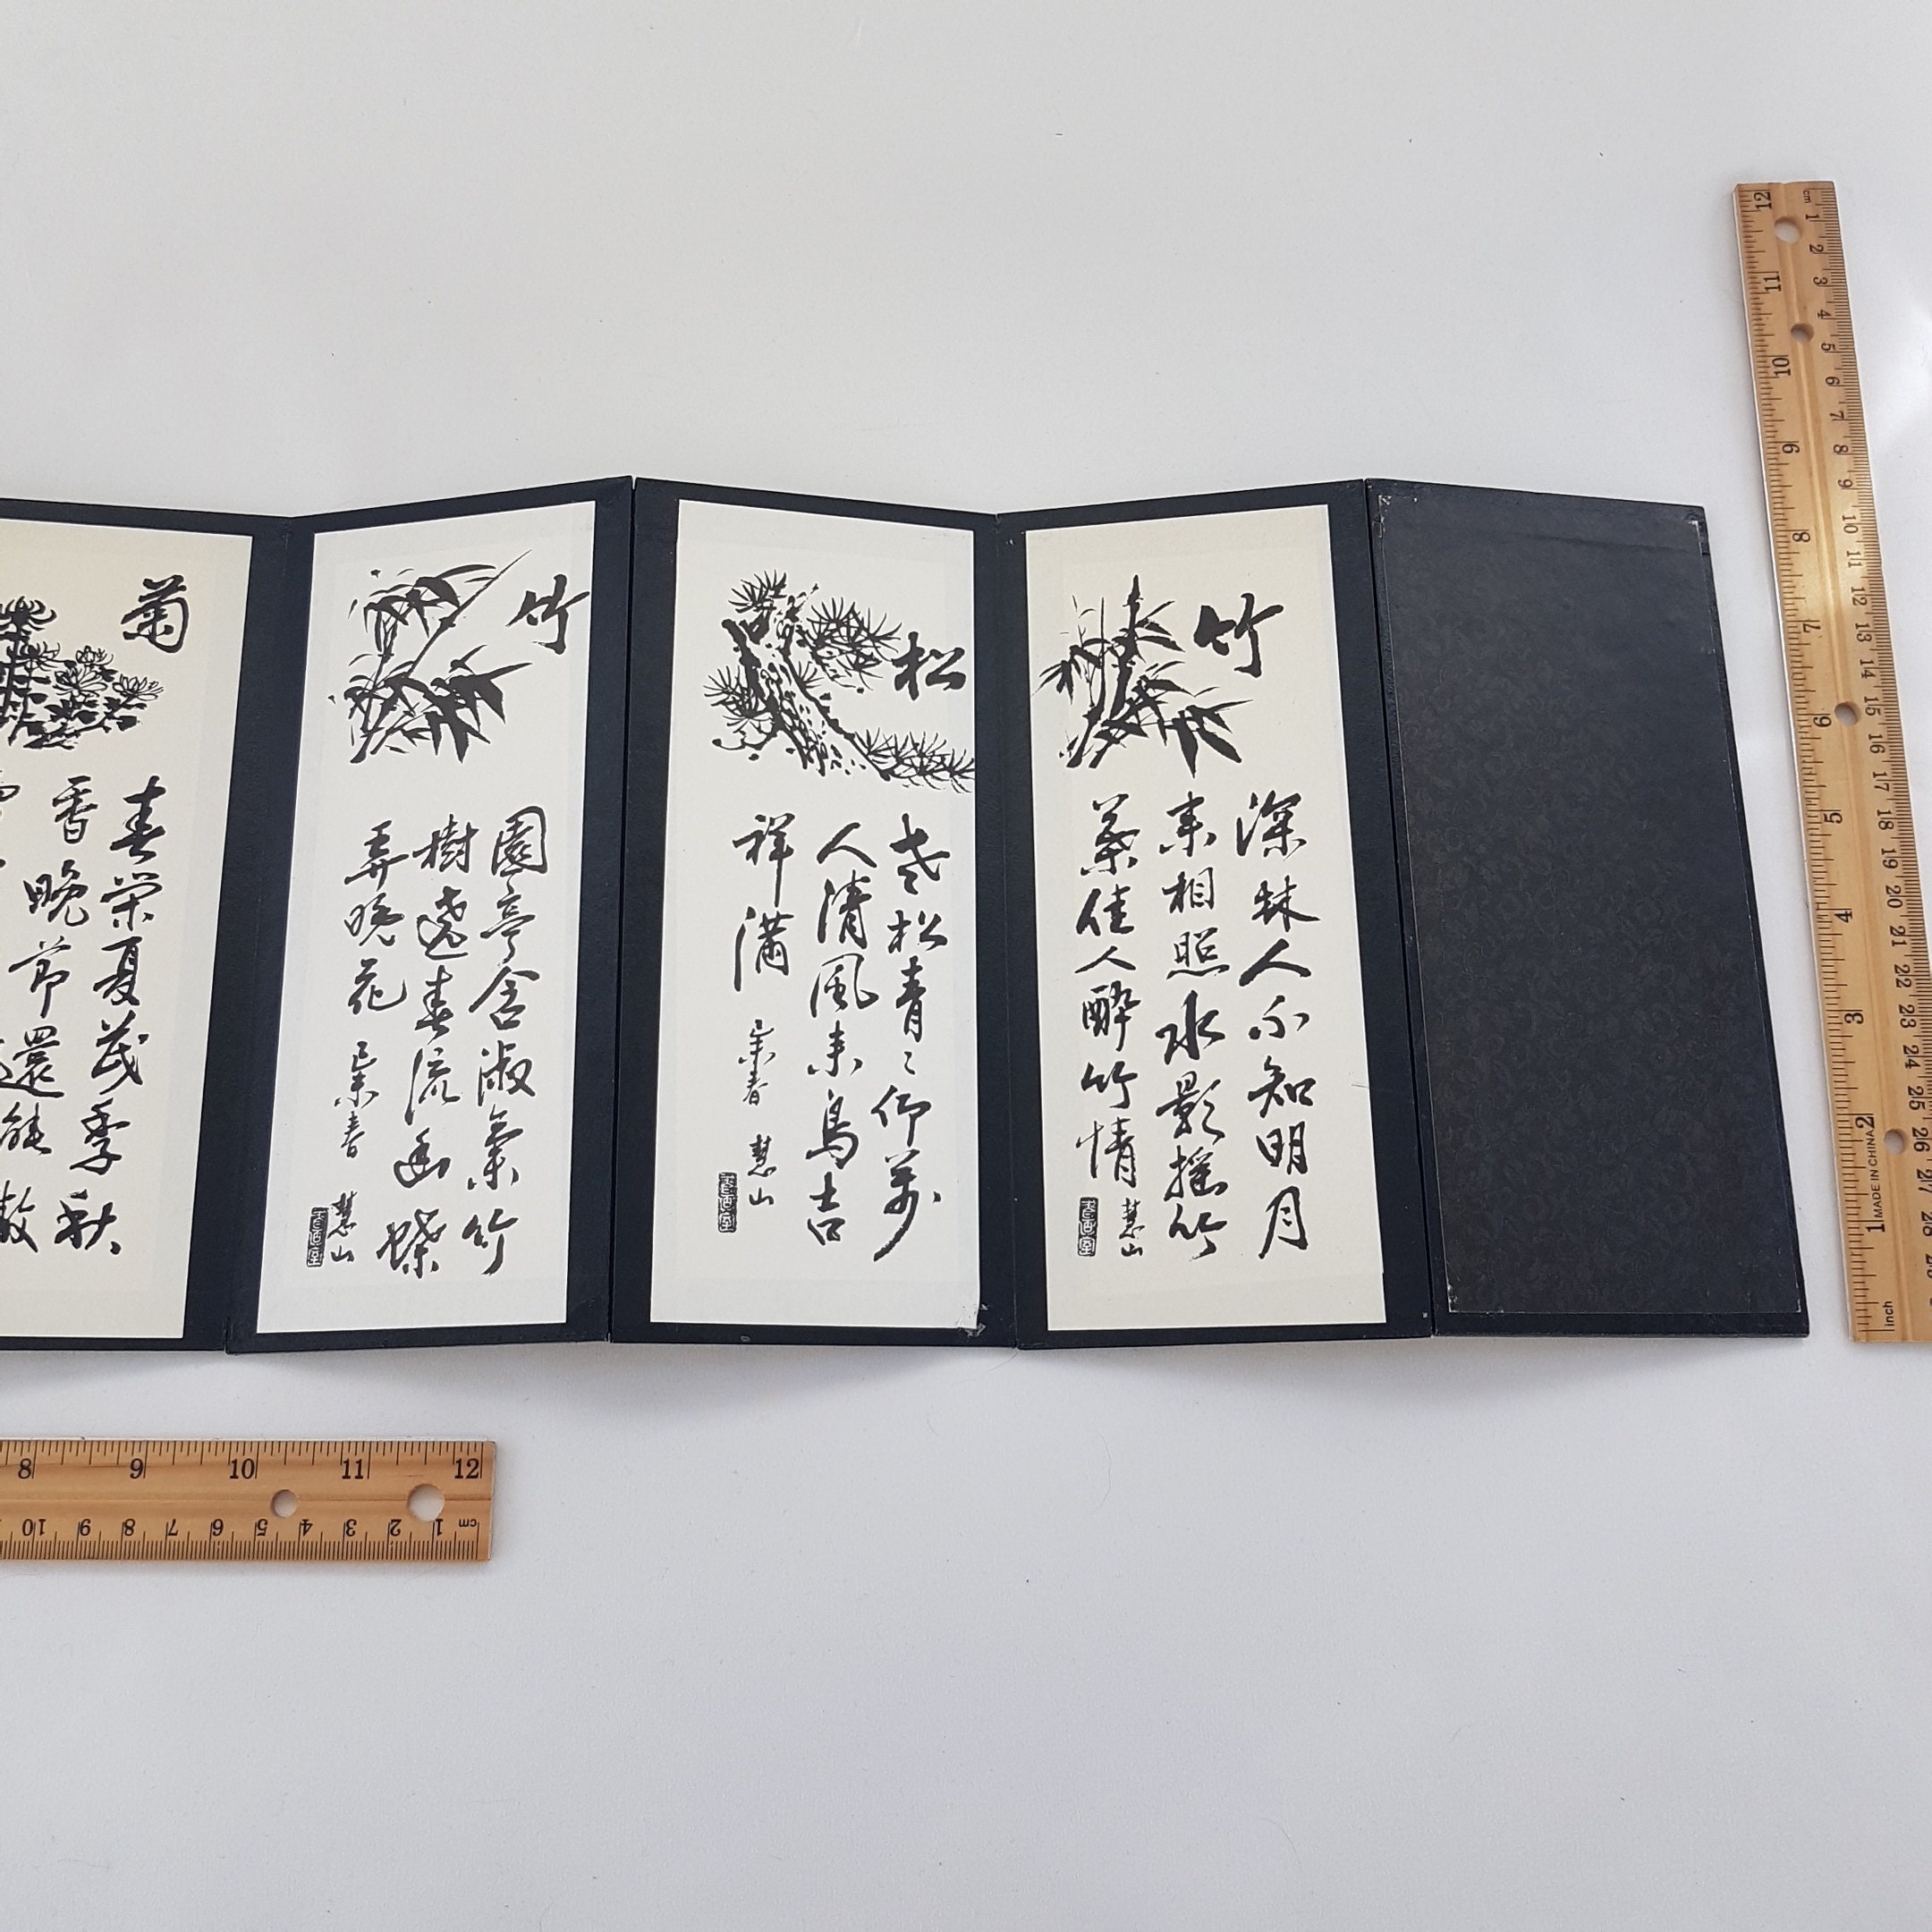 竹
深林人不知明月
来相照水影搖竹
葉佳人醉竹情
慧山
松
老松青〻仰萬
人清風来鳥吉
祥滿
春 慧山
竹
園亭含淑氣竹
樹遶春流幽蝶
弄晚花
春
慧山
菊
春栄夏茂季秋
香晚節還能
8 9 10 11 12
10 9 8 7 6 5 4 3 2 1 cm
12 11 10 9 8 7 6 5 4 3 2 1 inch
MADE IN CHINA
cm 1 2 3 4 5 6 7 8 9 10 11 12 13 14 15 16 17 18 19 20 21 22 23 24 25 26 27 28